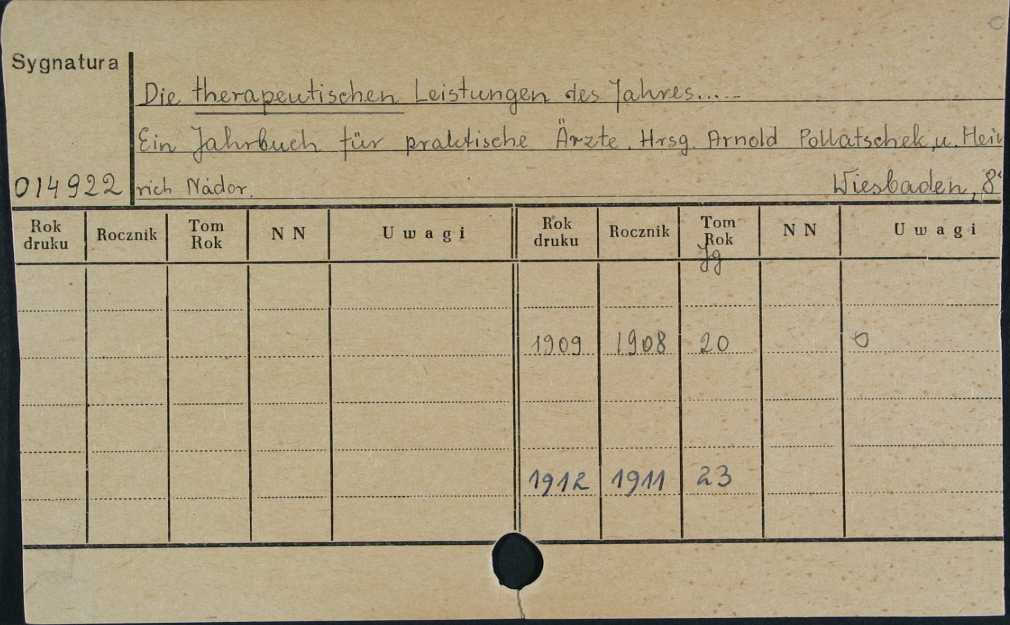 Sygnatura
Die therapeutischen Leistungen des Jahres.....
Ein Jahrbuch für praktische Ärzte. Hrsg. Arnold Pollatschek, u. Hein
014922 rich Nádor. Wiesbaden, 8°
Rok druku Rocznik Tom Rok NN Uwagi Rok druku Rocznik Tom Rok Jg NN Uwagi
1909 1908 20 0
1912 1911 23